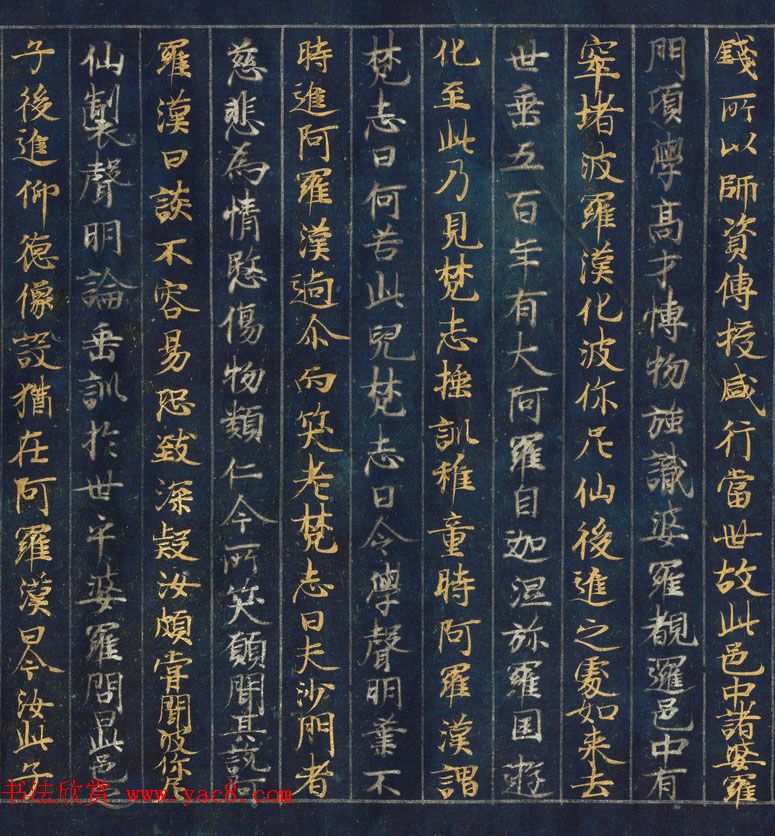 錢所以師資傳授咸行當世故此邑中諸婆羅
門項學高才愽物強識婆羅覩邏邑中有
窣堵波羅漢化波你尼仙後進之處如来去
世垂五百年有大阿羅自迦濕弥羅国遊
化至此乃見梵志捶訓稚童時阿羅漢謂
梵志曰何苦此兒梵志曰令學聲明葉不
時進阿羅漢逌尒而笑老梵志曰夫沙門者
慈悲為情愍傷物類仁今所笑願聞其說阿
羅漢曰談不容易恐致深疑汝頗甞聞波你尼
仙製聲明論垂訓於世乎婆羅門曰此邑之
子後進仰德像設猶在阿羅漢曰今汝此子
书法欣赏 www.yac8.com